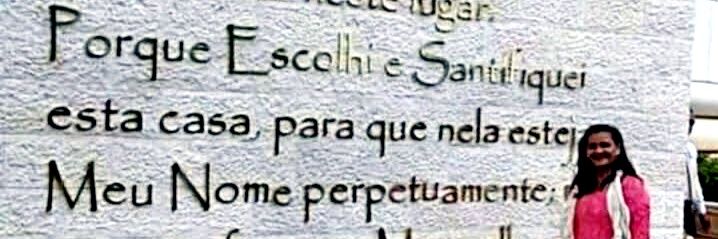 neste lugar.
Porque Escolhi e Santifiquei
esta casa, para que nela estej
Meu Nome perpetuamente;